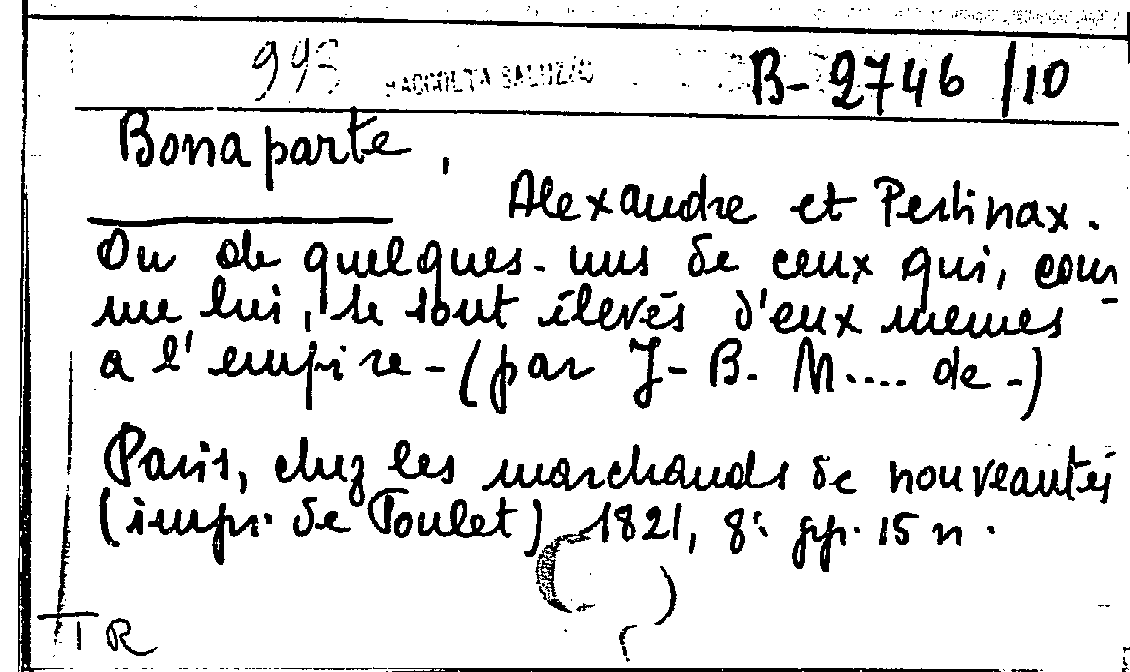 993 RACCOLTA SALUZZO B-2746/10
Bonaparte,
Alexandre et Pertinax.
Ou de quelques-uns de ceux qui, com-
me lui, se sont élevés d'eux memes
a l'empire-(par J-B. M.... de-)
Paris, chez les marchands de nouveautés
(impr. de Poulet) 1821, 8° pp. 15 n.
TR